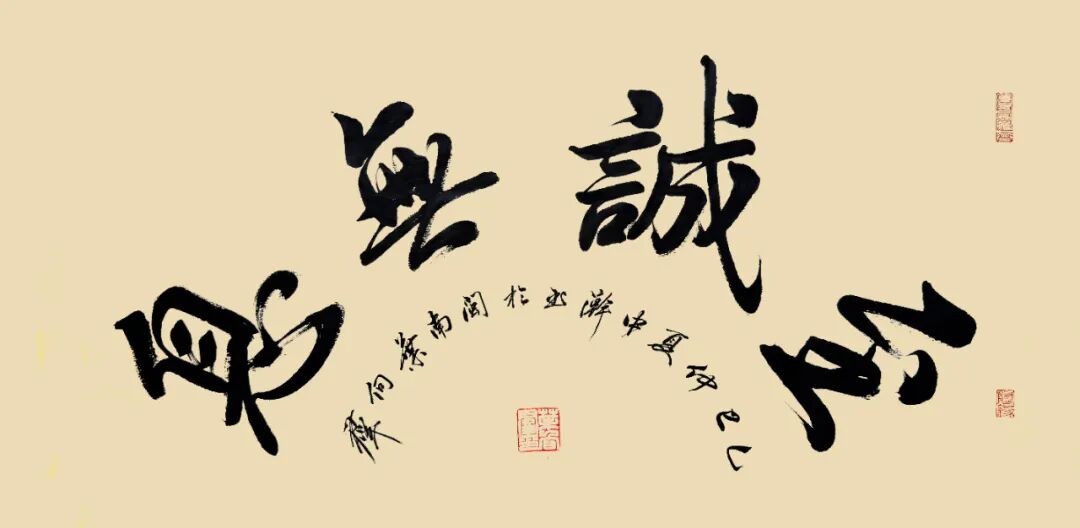 至誠無息
乙巳仲夏中澣书於閩南蔡向